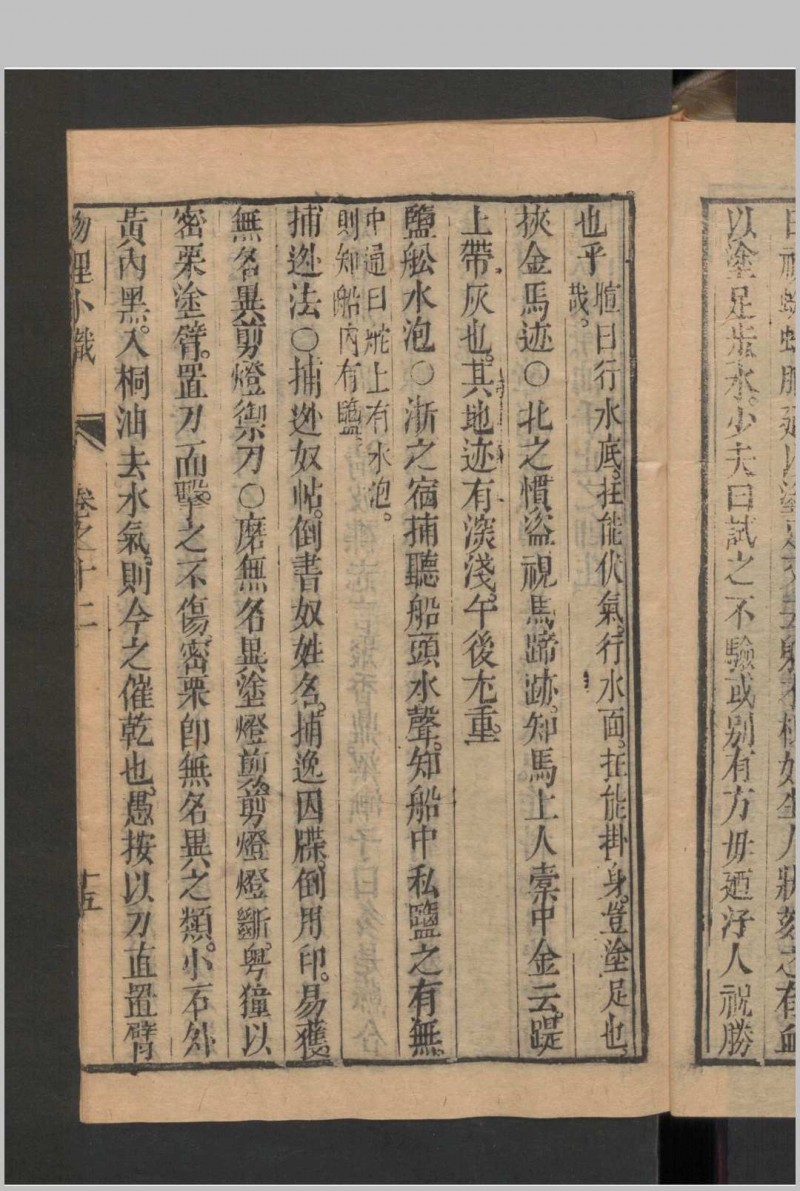 以塗足步水少夫曰試之不驗或别有方毋廼浮人祝勝
也乎
暄曰行水底。在能伏氣。行水面。在能掛身。豈塗足也。
哉。
挾金馬迹〇北之慣盜視馬蹄跡。知馬上人橐中金云。踶
上帶灰也。其地迹有深淺。午後尢重。
鹽舩水泡〇浙之宿捕聽船頭水聲。知船中私鹽之有無。
中通曰。舵上有水泡。
則知船內有鹽。
捕迯法〇捕迯奴帖。倒書奴姓名。捕逸囚牒。倒用印。易獲。
無名異剪燈禦刀〇磨無名異塗燈剪。剪燈燈斷。粤獞以
密栗塗臂。置刀而擊之不傷。密栗卽無名異之類。小石外
黃內黑。入桐油去水氣。則今之催乾也。愚按以刀直置臂
物理小識
卷之十二
十五